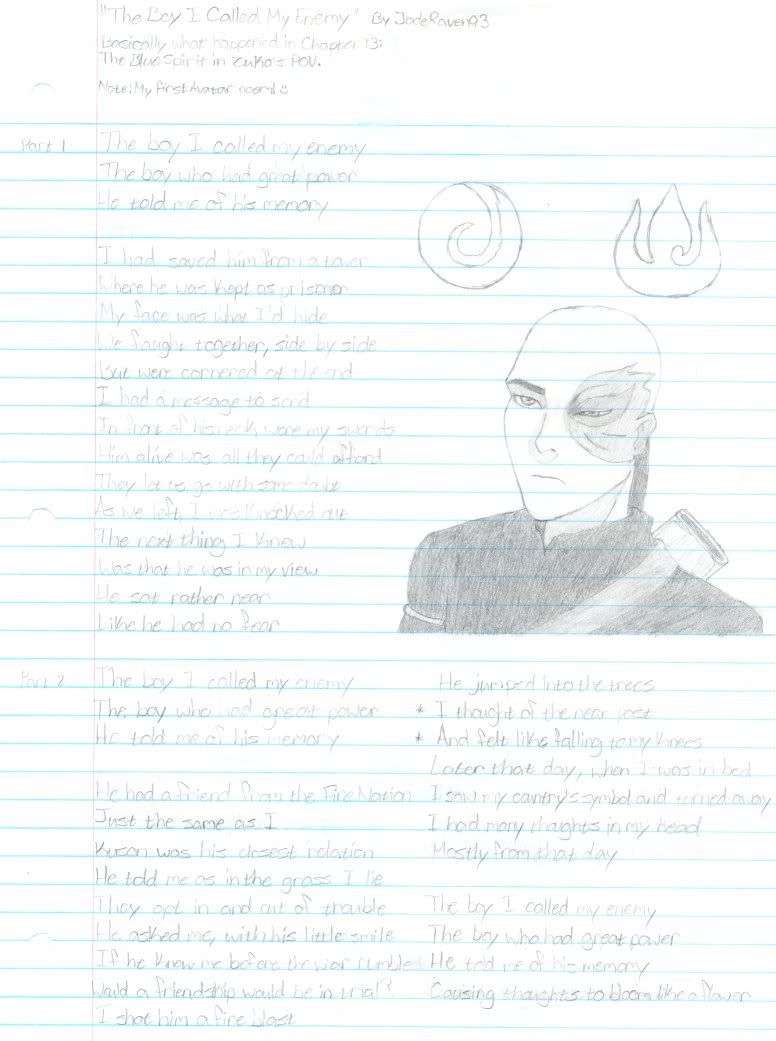 "The Boy I Called My Enemy" By JadeRaven93
Basically what happened in Chapter 13:
The Blue Spirit in Zuko's POV.
Note: My first Avatar poem! :)
Part 1
The boy I called my enemy
The boy who had great power
He told me of his memory
I had saved him from a tower
Where he was kept as prisoner
My face was what I'd hide
We fought together, side by side
But were cornered at the end
I had a message to send
In front of his neck were my swords
Him alive was all they could afford
They let us go with some doubt
As we left, I was knocked out
The next thing I knew
Was that he was in my view
He sat rather near
Like he had no fear
Part 2
The boy I called my enemy
The boy who had great power
He told me of his memory
He had a friend from the Fire Nation
Just the same as I
Kuson was his closest relation
He told me as in the grass I lie
They got in and out of trouble
He asked me, with his little smile
If he knew me before the war rumble
Would a friendship would be in trial?
I shot him a fire blast
He jumped into the trees
* I thought of the near past
* And felt like falling to my knees
Later that day, when I was in bed
I saw my country's symbol and turned away
I had many thoughts in my head
Mostly from that day
The boy I called my enemy
The boy who had great power
He told me of his memory
Causing thoughts to bloom like a flower